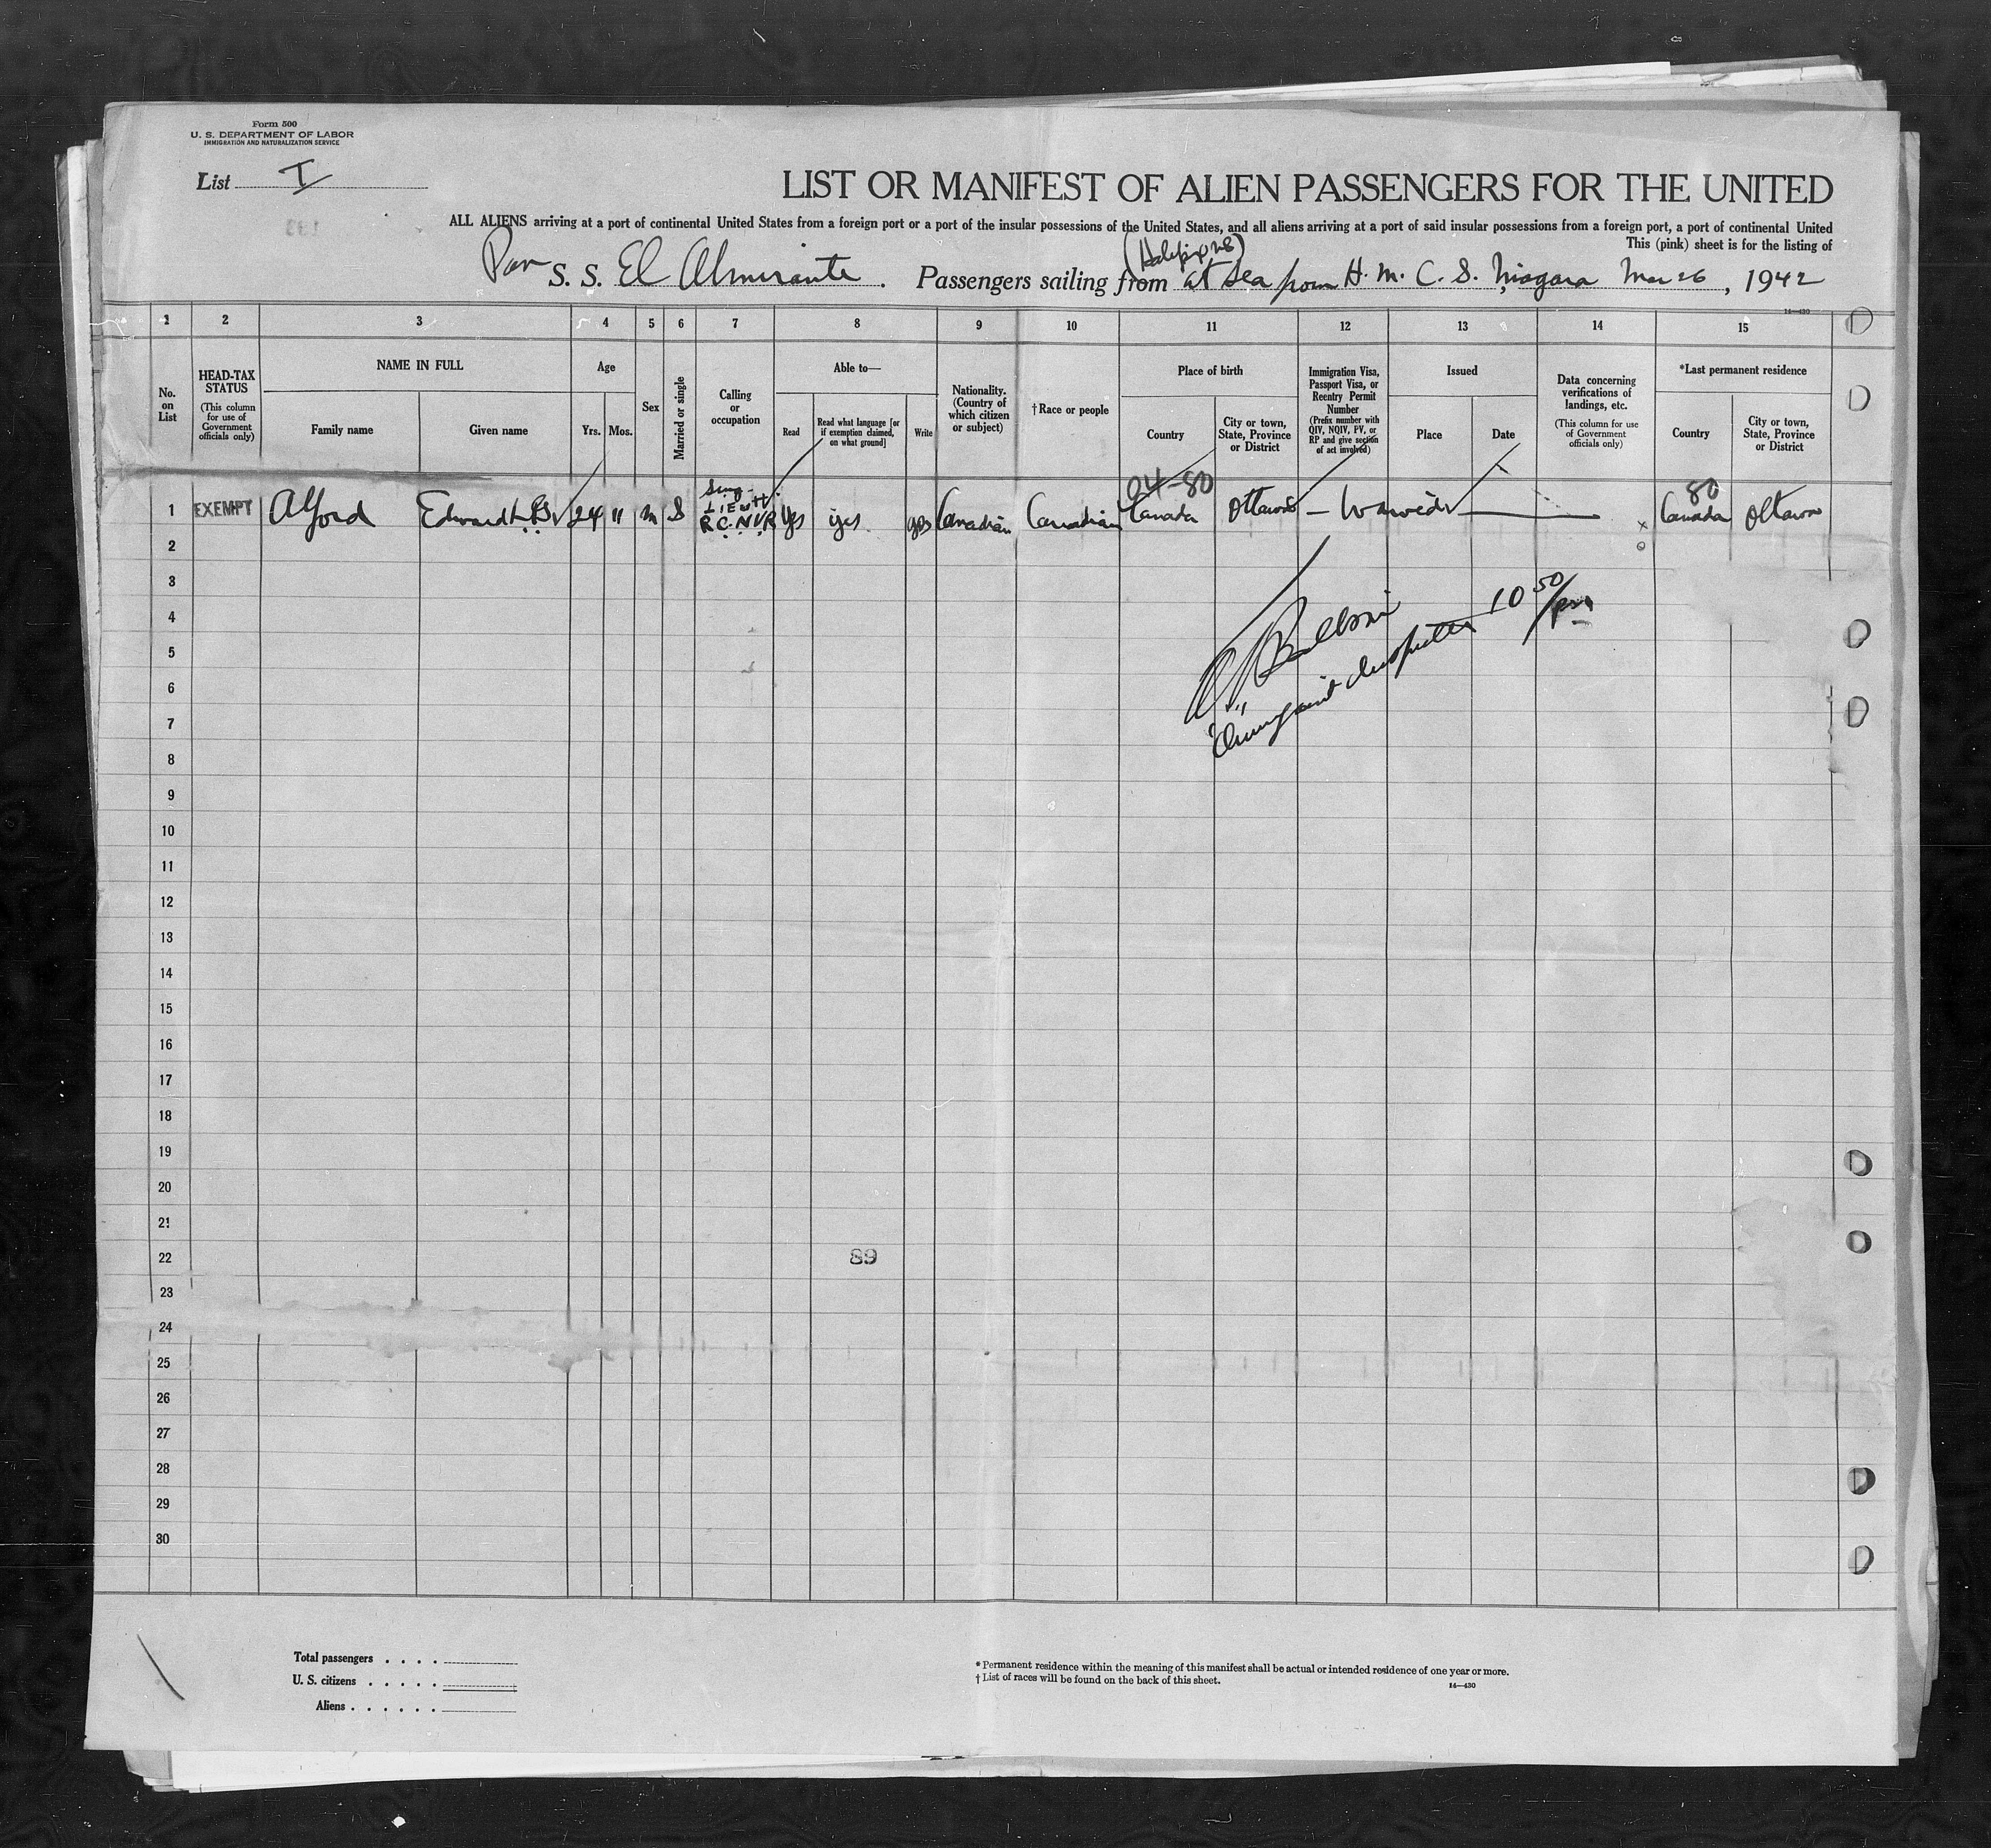 Form 500
U. S. DEPARTMENT OF LABOR
IMMIGRATION AND NATURALIZATION SERVICE
List I
LIST OR MANIFEST OF ALIEN PASSENGERS FOR THE UNITED
ALL ALIENS arriving at a port of continental United States from a foreign port or a port of the insular possessions of the United States, and all aliens arriving at a port of said insular possessions from a foreign port, a port of continental United
This (pink) sheet is for the listing of
S. S. El Almirante. Passengers sailing from at sea from H. M. C. S. Niagara Mar 26, 1942
14—430
1 2 3 4 5 6 7 8 9 10 11 12 13 14 15
No. on List
HEAD-TAX STATUS (This column for use of Government officials only)
NAME IN FULL
Family name
Given name
Age
Yrs.
Mos.
Sex
Married or single
Calling or occupation
Able to—
Read
Read what language [or if exemption claimed, on what ground]
Write
Nationality. (Country of which citizen or subject)
†Race or people
Place of birth
Country
City or town, State, Province or District
Immigration Visa, Passport Visa, or Reentry Permit Number (Prefix number with QIV, NQIV, PV, or RP and give section of act involved)
Issued
Place
Date
Data concerning verifications of landings, etc. (This column for use of Government officials only)
*Last permanent residence
Country
City or town, State, Province or District
04-80
80
1 EXEMPT Alford Edward 24 11 M S LIEUT R.C.N.V.R. yes yes yes Canadian Canadian Canada Ottawa — Waived Canada Ottawa
x
o
2
3
4
5
6
7
8
9
10
11
12
13
14
15
16
17
18
19
20
21
22
23
24
25
26
27
28
29
30
Immigrant Inspector 10 50/pm
89
Total passengers . . . .
U. S. citizens . . . . .
Aliens . . . . . .
*Permanent residence within the meaning of this manifest shall be actual or intended residence of one year or more.
†List of races will be found on the back of this sheet.
14—430